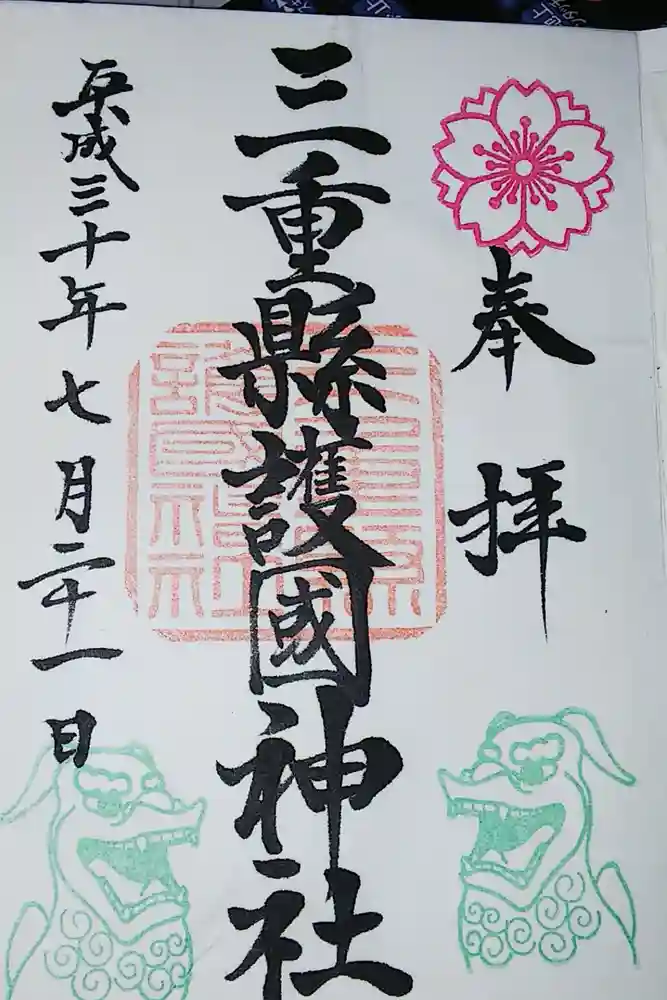 奉拝
三重縣護國神社
平成三十年七月二十一日